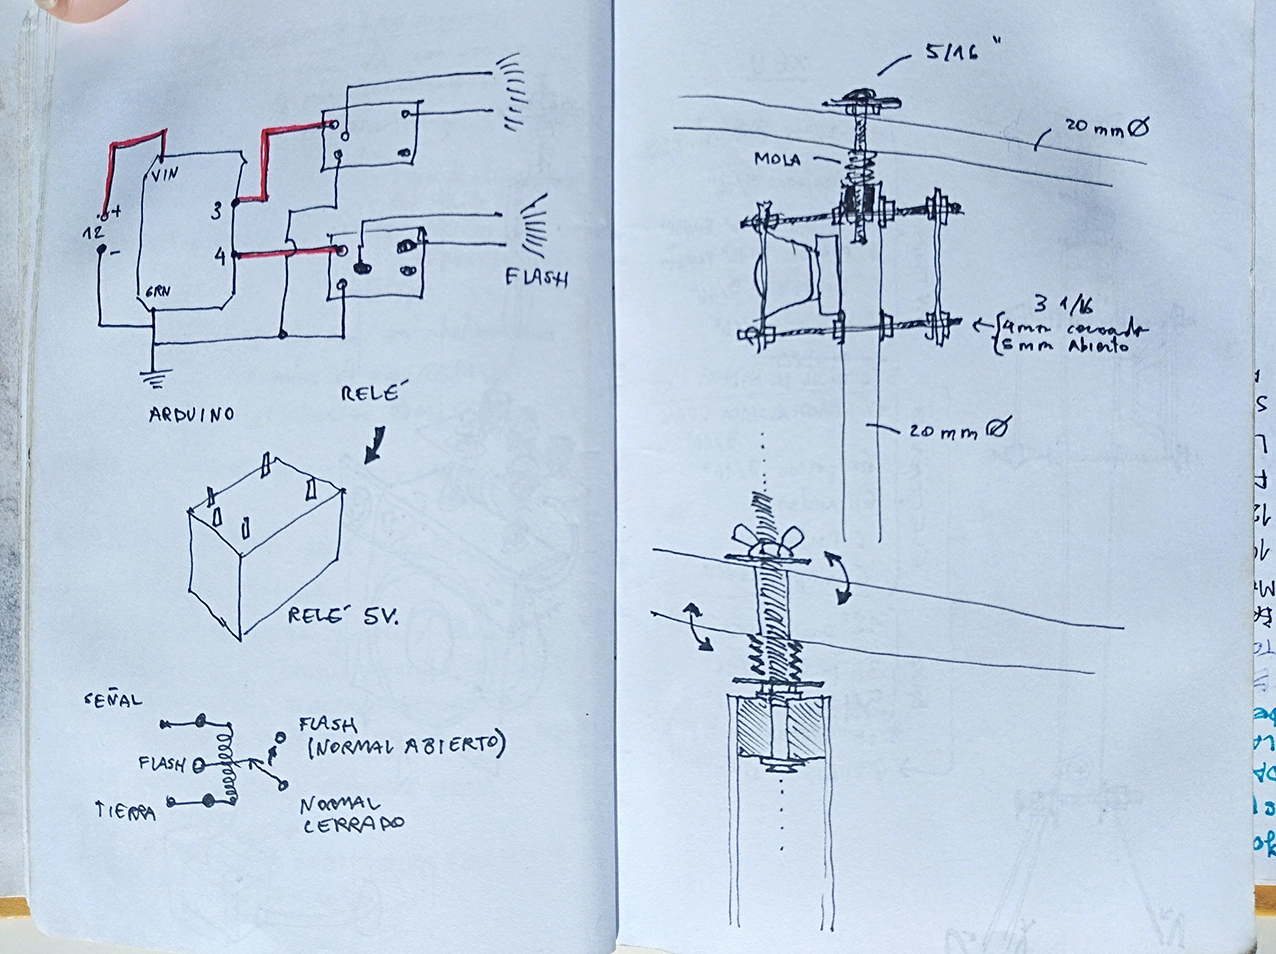 VIN
+
3
12
-
4
GRN
FLASH
ARDUINO
RELÉ
RELÉ 5V.
SEÑAL
FLASH
(NORMAL ABIERTO)
FLASH
TIERRA
NORMAL
CERRADO
5/16"
20 mm Ø
MOLA
3 1/16
4mm
5mm Abierto
20 mm Ø